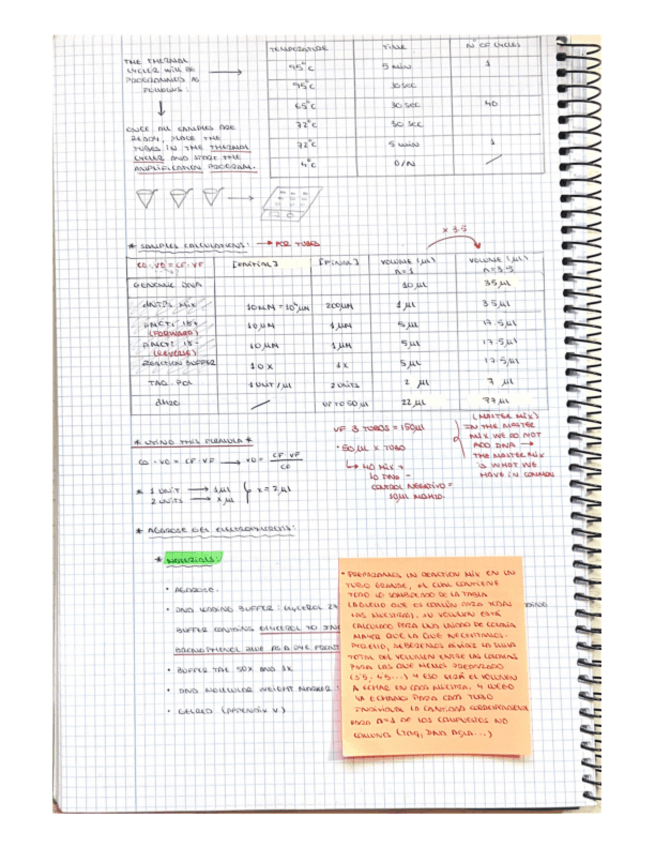 THE THERMAL
CYCLER WILL BE
PROGRAMMED AS
FOLLOWS:
ONCE ALL SAMPLES ARE
READY, PLACE THE
TUBES IN THE THERMAL
CYCLER AND START THE
AMPLIFICATION PROGRAM.
TEMPERATURE TIME Nº OF CYCLES
95°C 5 MIN 1
95°C 30 SEC
65°C 30 SEC 40
72°C 30 SEC
72°C 5 MIN 1
4°C O/N /
* SAMPLES CALCULATIONS: → POR TUBES
x 3.5
C0·V0 = CF·VF [INITIAL] [FINAL] VOLUME (µl) n=1 VOLUME (µl) n=3.5
GENOMIC DNA 10 µl 35 µl
dNTPs MIX 10 mM = 10⁴ µM 200 µM 1 µl 3.5 µl
(FORWARD) 10 µM 1 µM 5 µl 17.5 µl
(REVERSE) 10 µM 1 µM 5 µl 17.5 µl
REACTION BUFFER 10x 1x 5 µl 17.5 µl
TAQ. POL 1 UNIT/µl 2 UNITS 2 µl 7 µl
dH2O / UP TO 50 µl 22 µl 77 µl
* USING THIS FORMULA *
C0·V0 = CF·VF → V0 = CF·VF / C0
* 1 UNIT → 1 µl
2 UNITS → x µl } x = 2 µl
VF 3 TUBOS = 150 µl
· 50 µl x TUBO
↳ 40 MIX +
10 DNA -
CONTROL NEGATIVO =
(MASTER MIX)
IN THE MASTER
MIX WE DO NOT
ADD DNA →
THE MASTER MIX
IS WHAT WE
HAVE IN COMMON
* AGAROSE GEL ELECTROPHORESIS:
* MATERIALS:
• AGAROSE.
• DNA LOADING BUFFER: GLYCEROL
BUFFER CONTAINS GLYCEROL TO
BROMOPHENOL BLUE AS A DYE FRONT
• BUFFER TAE 50X AND 1X
• DNA MOLECULAR WEIGHT MARKER:
• GELRED (APPENDIX V)
• PREPARAMOS UN REACTION MIX EN UN
TUBO GRANDE, EL CUAL CONTIENE
TODO LO SOMBREADO DE LA TABLA
(AQUELLO QUE ES COMÚN PARA TODAS
LAS MUESTRAS). SU VOLUMEN ESTÁ
CALCULADO PARA UNA UNIDAD DE COLUMNA
MAYOR QUE LA QUE NECESITAMOS.
POR ELLO, DEBEREMOS DIVIDIR LA SUMA
TOTAL DEL VOLUMEN ENTRE LAS COLUMNAS
PARA LAS QUE HEMOS PREPARADO
(3'5, 4'5...) Y ESO SERÁ EL VOLUMEN
A ECHAR EN CADA MUESTRA. Y LUEGO
YA ECHAMOS PARA CADA TUBO
INDIVIDUAL LA CANTIDAD CORRESPONDIENTE
PARA n=1 DE LOS COMPUESTOS NO
COMUNES (TAQ, DNA AGUA...)